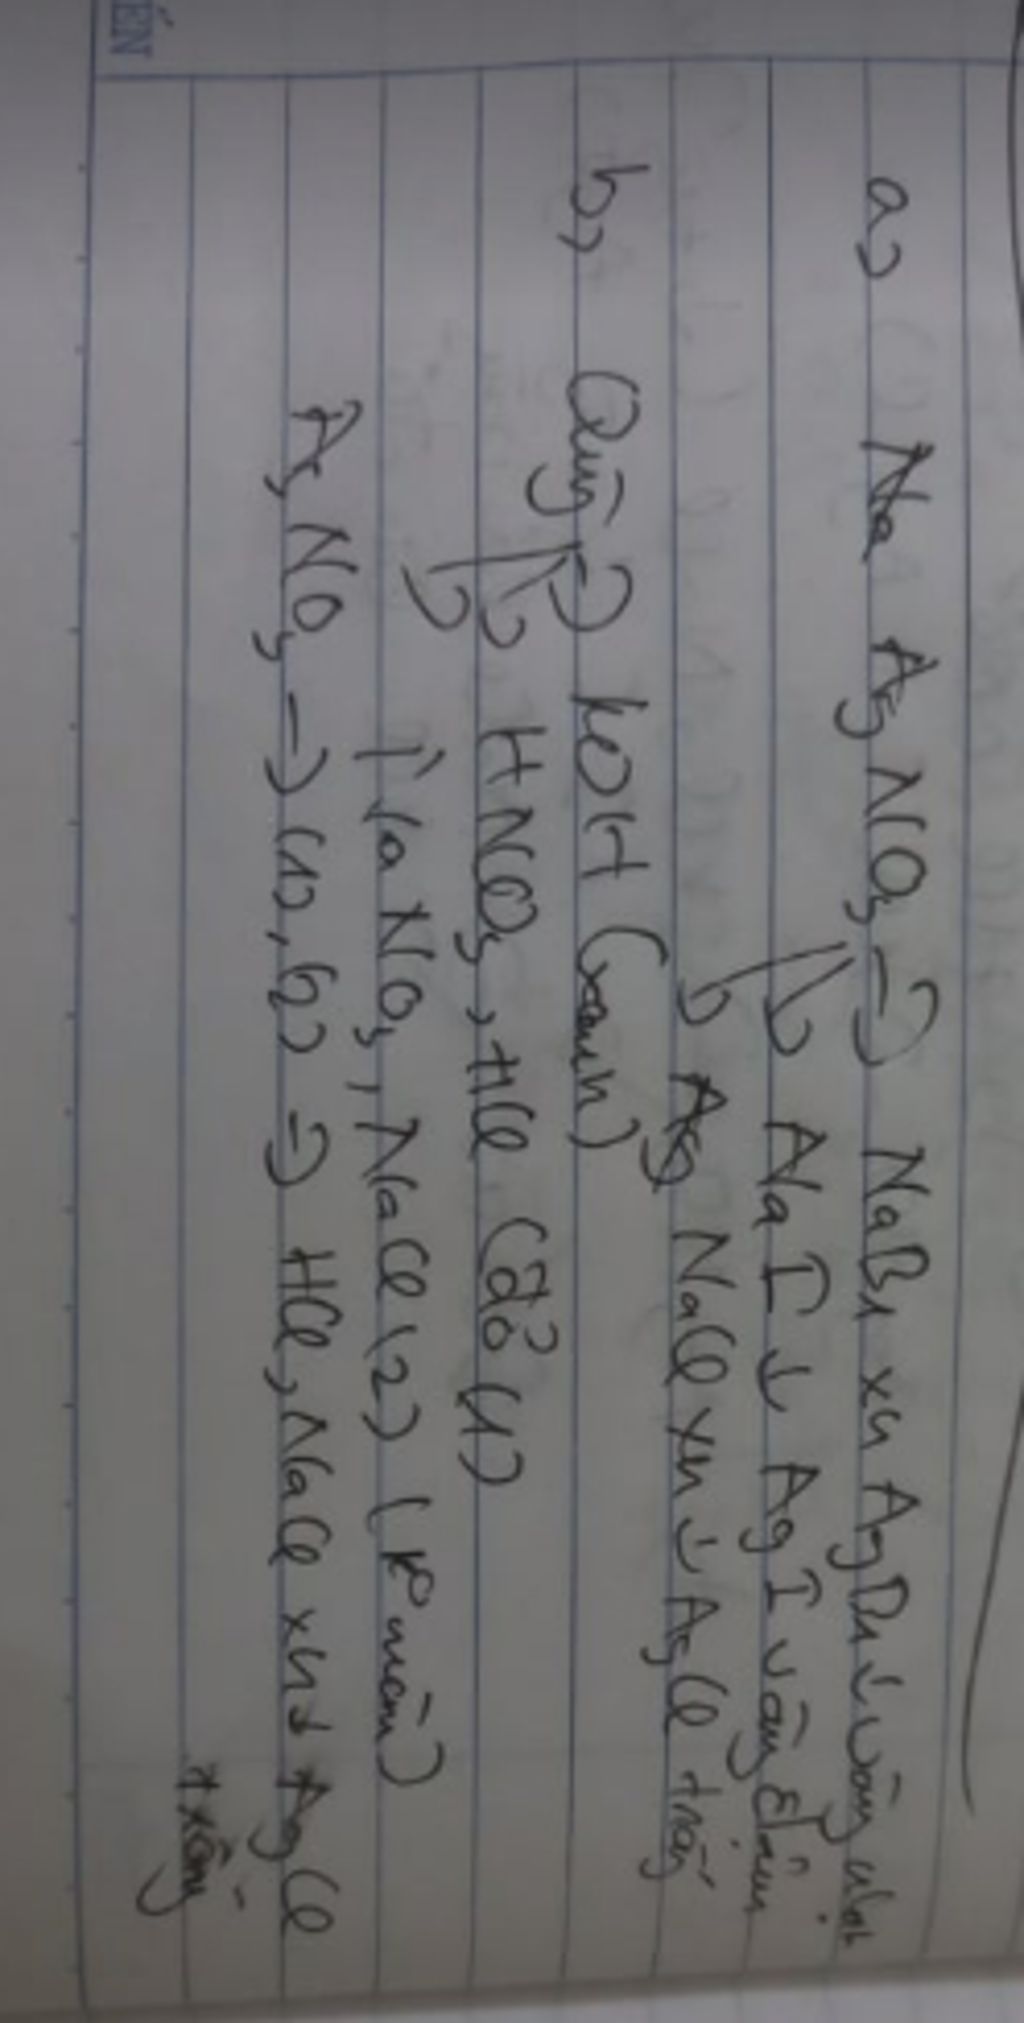 ẾN
a) AgNO3 → NaBr xh AgBr ↓ vàng nhạt
→ NaI ↓ AgI vàng đậm
→ NaCl xh ↓ AgCl trắng
b) Quỳ → KOH (xanh)
→ HNO3, HCl (đỏ (1)
→ NaNO3, NaCl (2) (K° màu)
AgNO3 → (1), (2) => HCl, NaCl xh ↓ AgCl
trắng